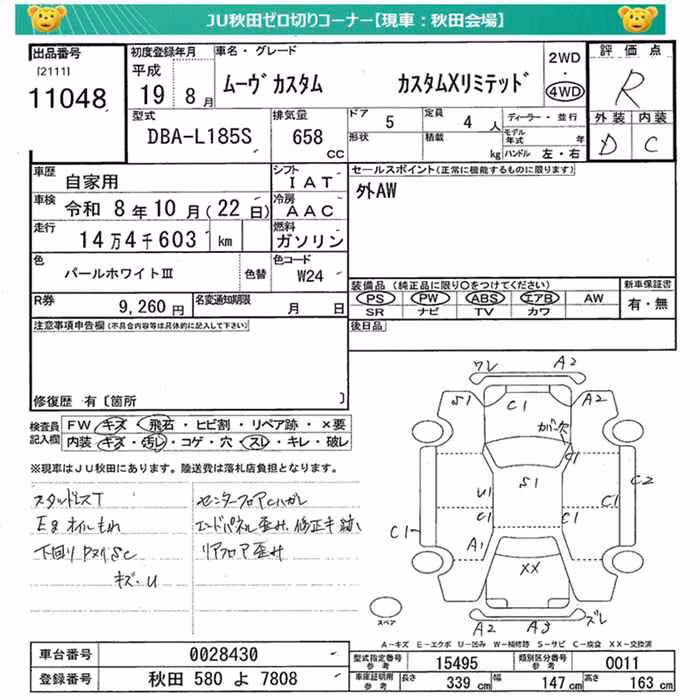 JU秋田ゼロ切りコーナー【現車：秋田会場】
出品番号
[2111]
11048
初度登録年月
平成
19 8月
車名・グレード
ムーヴカスタム カスタムXリミテッド
2WD
・
4WD
評価点
R
外装 内装
D C
型式
DBA-L185S
排気量
658
CC
ドア
5
定員
4人
ディーラー・並行
形状
積載
kg
モデル年式 年
ハンドル 左・右
車歴
自家用
シフト
IAT
車検
令和 8年10月(22日)
冷房
AAC
走行
14万4千603 km
燃料
ガソリン
色
パールホワイトⅢ
色替
色コード
W24
R券
9,260円
名変通知期限
月 日
セールスポイント(正常に機能するものに限ります)
外AW
装備品(純正品に限り○をつけてください)
PS PW ABS エアB AW
SR ナビ TV カワ
新車保証書
有・無
後日品
注意事項申告欄(不具合内容等は具体的に記入して下さい)
修復歴 有〔箇所 〕
検査員記入欄
FW キズ・飛石・ヒビ割・リペア跡・×要
内装・キズ・汚レ・コゲ・穴・スレ・キレ・破レ
※現車はJU秋田にあります。陸送費は落札店負担となります。
スタッドレスT
Egオイルもれ
下回り
キズ・U
センターフロアCハガレ
エンドパネル歪み、修正キ跡
リアフロア歪み
ワレ A2
S1 C1 A2
カバー欠
C1
U1 S1
C2
C1 C1 C1 C1
A1
XX
スペア
A2 A3 ズレ
A－キズ E－エクボ U－凹み W－補修跡 S－サビ C－腐食 XX－交換済
車台番号
0028430
登録番号
秋田 580 よ 7808
型式指定番号
参考
15495
類別区分番号
参考
0011
車庫証明用
参考
長さ
339 cm
幅
147 cm
高さ
163 cm